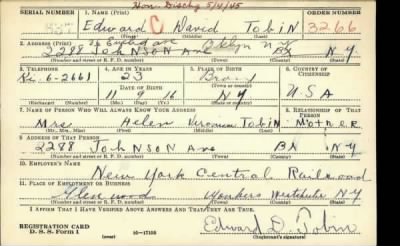 Hon. Dischg 5/4/45
SERIAL NUMBER 1. NAME (Print) ORDER NUMBER
Edward C David Tobin 3266
(First) (Middle) (Last)
Bklyn N.Y
2. ADDRESS (Print)
2288 Johnson Ave BX NY
(Number and street) (Town) (County) (State)
3. TELEPHONE 4. AGE IN YEARS 5. PLACE OF BIRTH 6. COUNTRY OF CITIZENSHIP
Ki. 6-2661 23 Bronx
DATE OF BIRTH
11 9 16 NY USA
(Exchange) (Number) (Mo.) (Day) (Yr.) (State or country)
7. NAME OF PERSON WHO WILL ALWAYS KNOW YOUR ADDRESS 8. RELATIONSHIP OF THAT PERSON
Mrs Helen Veronica Tobin Mother
(Mr., Mrs., Miss) (First) (Middle) (Last)
9. ADDRESS OF THAT PERSON
2288 Johnson Ave BX NY
(Number and street) (Town) (County) (State)
10. EMPLOYER'S NAME
New York Central Railroad
11. PLACE OF EMPLOYMENT OR BUSINESS
Glenwood Yonkers Westchester NY
(Number and street or R. F. D. number) (Town) (County) (State)
I AFFIRM THAT I HAVE VERIFIED ABOVE ANSWERS AND THAT THEY ARE TRUE.
REGISTRATION CARD
D. S. S. Form 1 (over) 16-17105 Edward D. Tobin
(Registrant's signature)